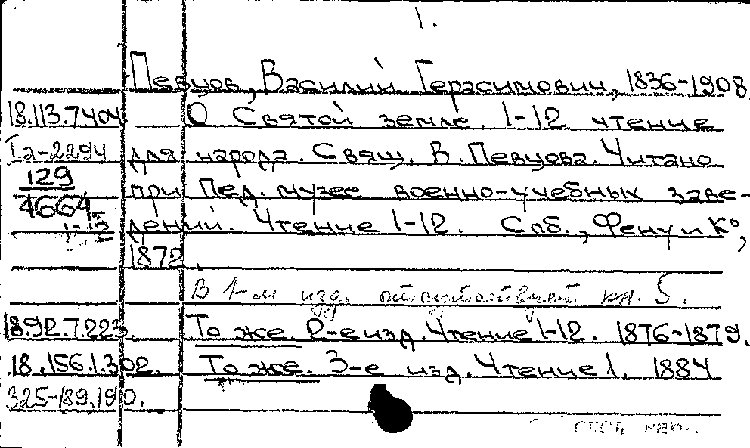 1.
Певцов, Василий Герасимович, 1836-1908
18.113.7404 О Святой земле. 1-12 чтение
Iа-2294 для народа. Свящ. В. Певцова. Читано
129 при Пед. музее военно-учебных заве-
4664 дений. Чтение 1-12. Спб., Фену и К°,
1-12 1872.
В 1-м изд. отсутствует кн. 5.
18.92.7.223 То же. 2-е изд. Чтение 1-12. 1876-1879.
18.156.1.302. То же. 3-е изд. Чтение 1. 1884
325-89,190.